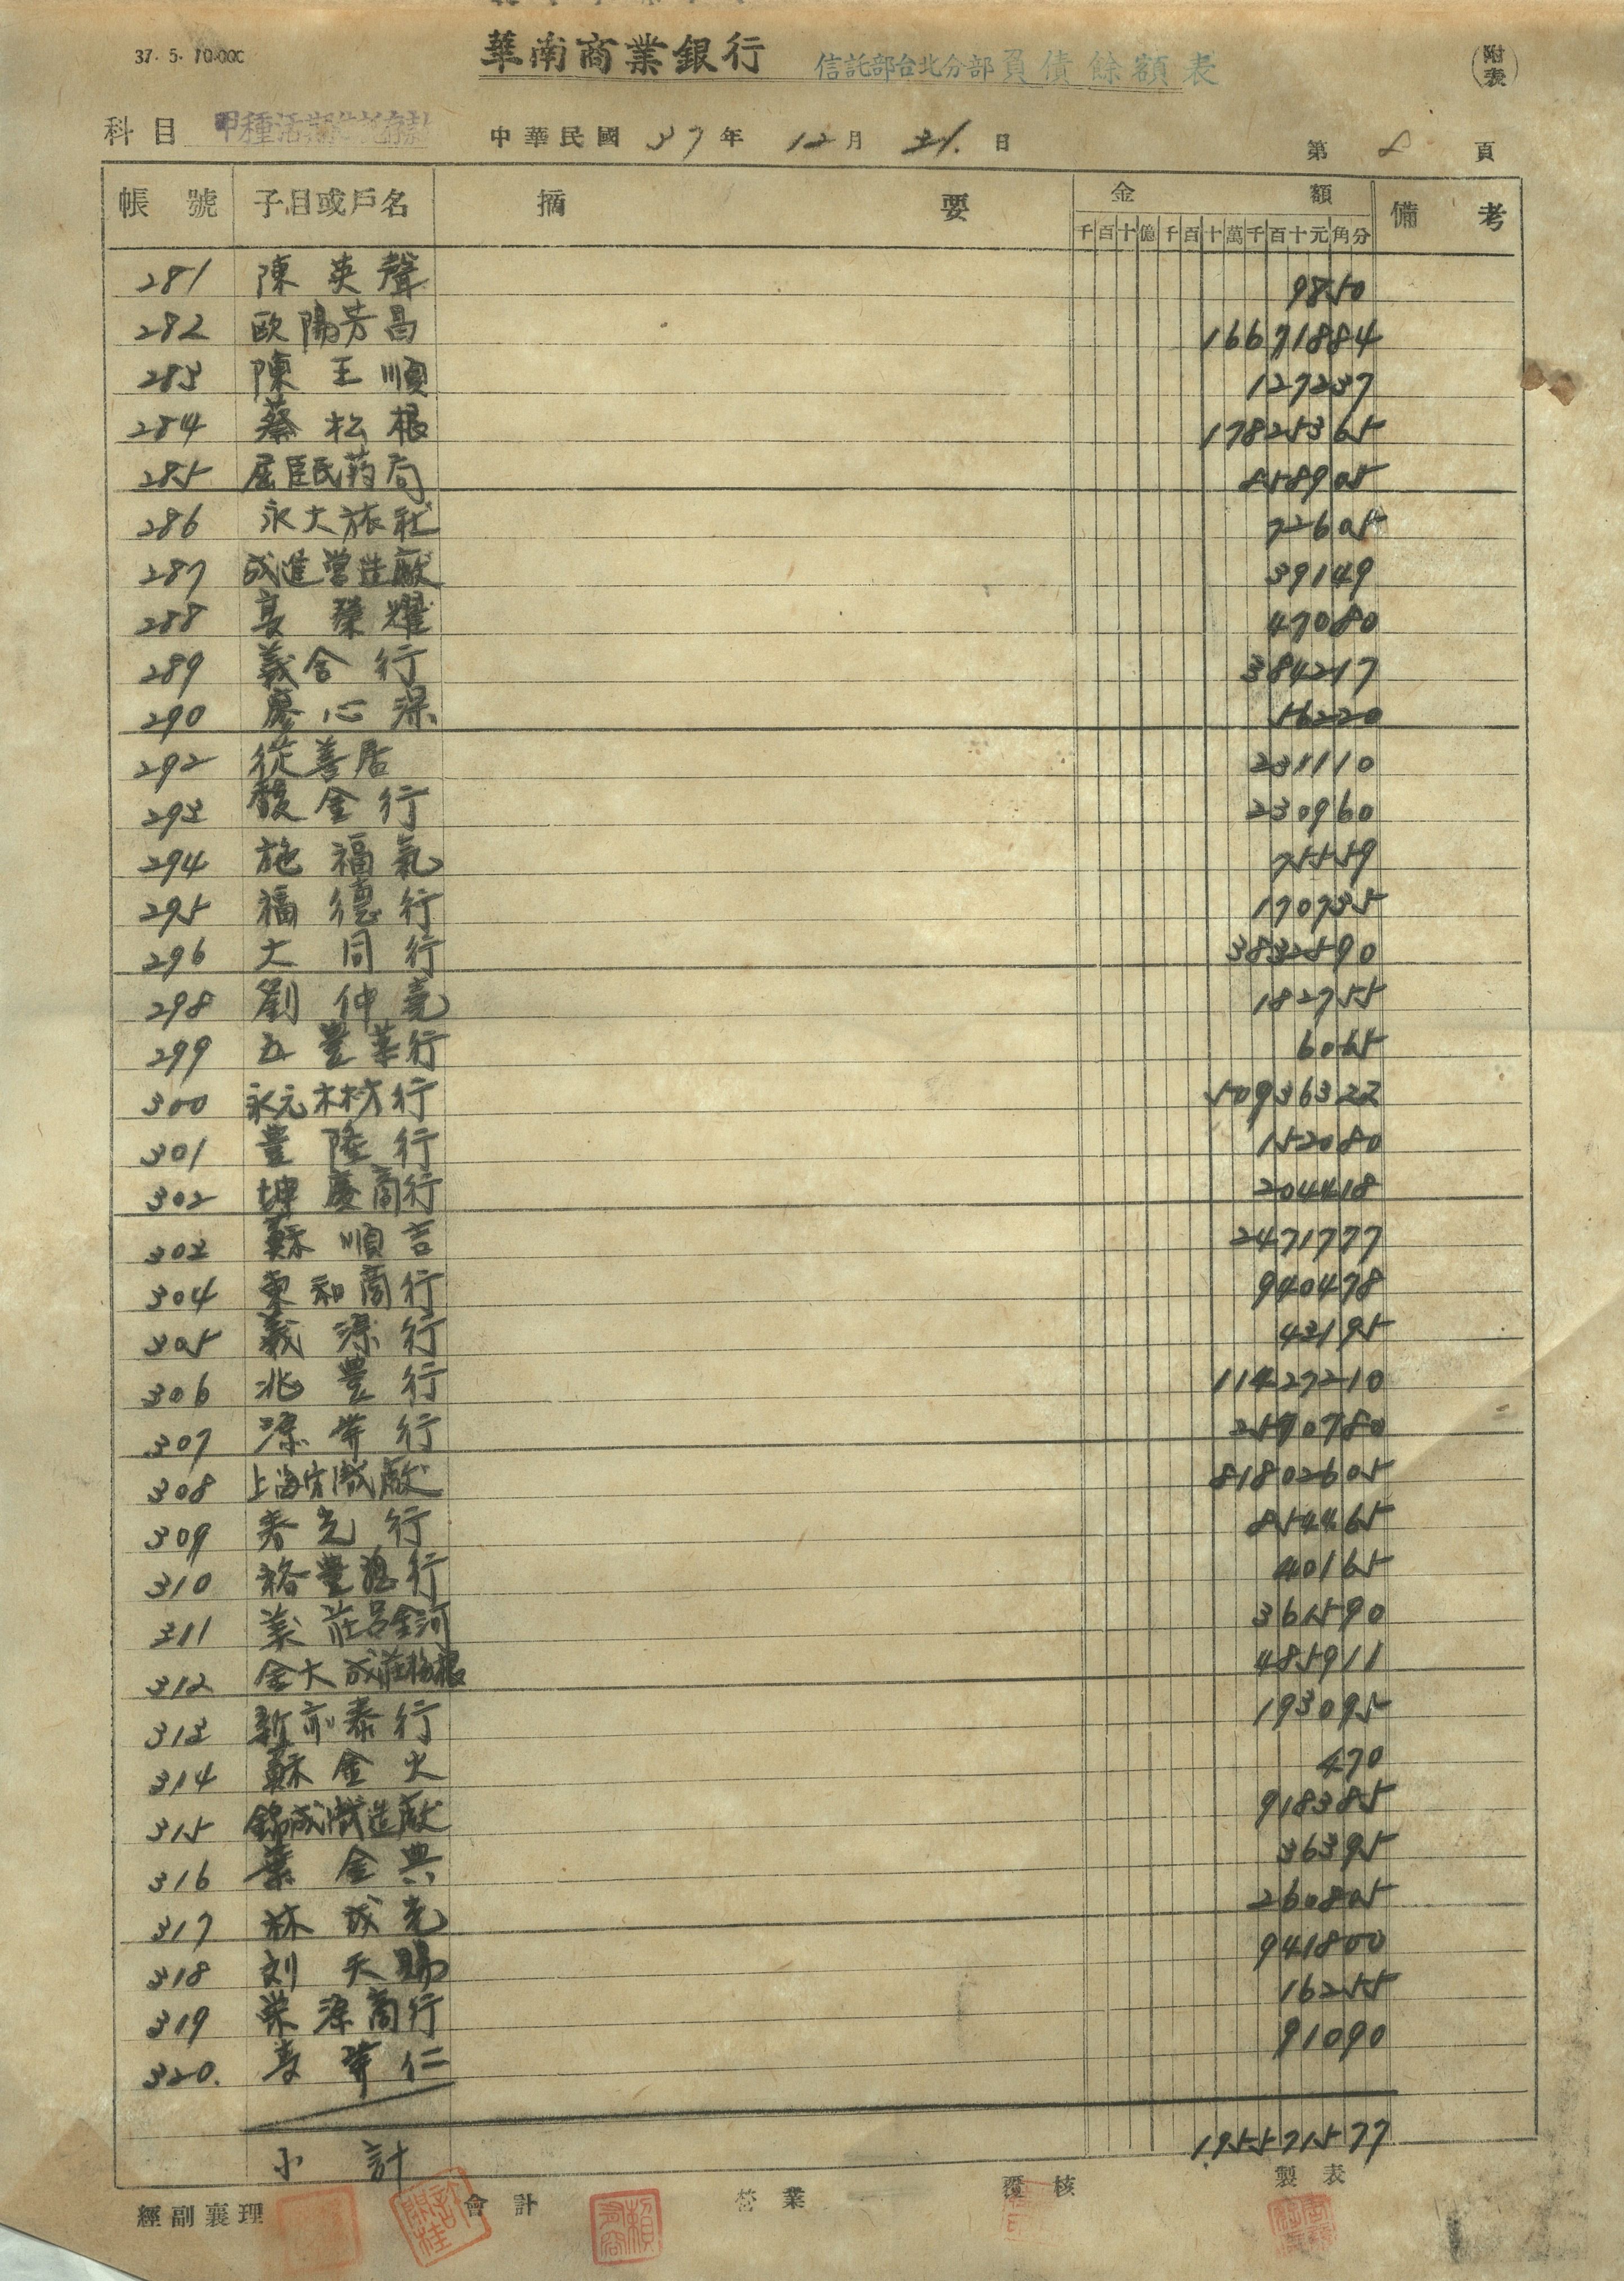 37. 5. 10.000
華南商業銀行 信託部台北分部負債餘額表 (附表)
科目 甲種活期信託存款 中華民國 37年 12月 31日 第 8 頁
帳號 子目或戶名 摘要 金額 備考
千百十億千百十萬千百十元角分
281 陳英聲 9850
282 歐陽芳昌 16671884
283 陳王順 127237
284 蔡松根 17825365
285 屈臣民葯局 858905
286 永大旅社 72605
287 成進營造廠 39149
288 榮耀 47080
289 義合行 384217
290 廖心源 56220
292 從善居 231110
293 馥金行 230960
294 施福氣 75559
295 福德行 170735
296 大同行 3832590
298 劉仲堯 182755
299 五豐華行 6065
300 永元木材行 50936322
301 豊陸行 152080
302 坤慶商行 204418
303 蘇順吉 2471777
304 東和商行 940478
305 義源行 43195
306 兆豊行 11427210
307 源華行 2590780
308 上海 廠 81802605
309 春光行 854465
310 裕豊 行 40165
311 義莊呂金河 361590
312 金大成莊 根 485911
313 新 泰行 193095
314 蘇金火 470
315 錦成 造廠 918385
316 葉金興 36395
317 林成 260805
318 刘天賜 941800
319 榮源商行 16255
320. 仁 91090
小計 195571577
經副襄理 會計 營業 覆核 製表